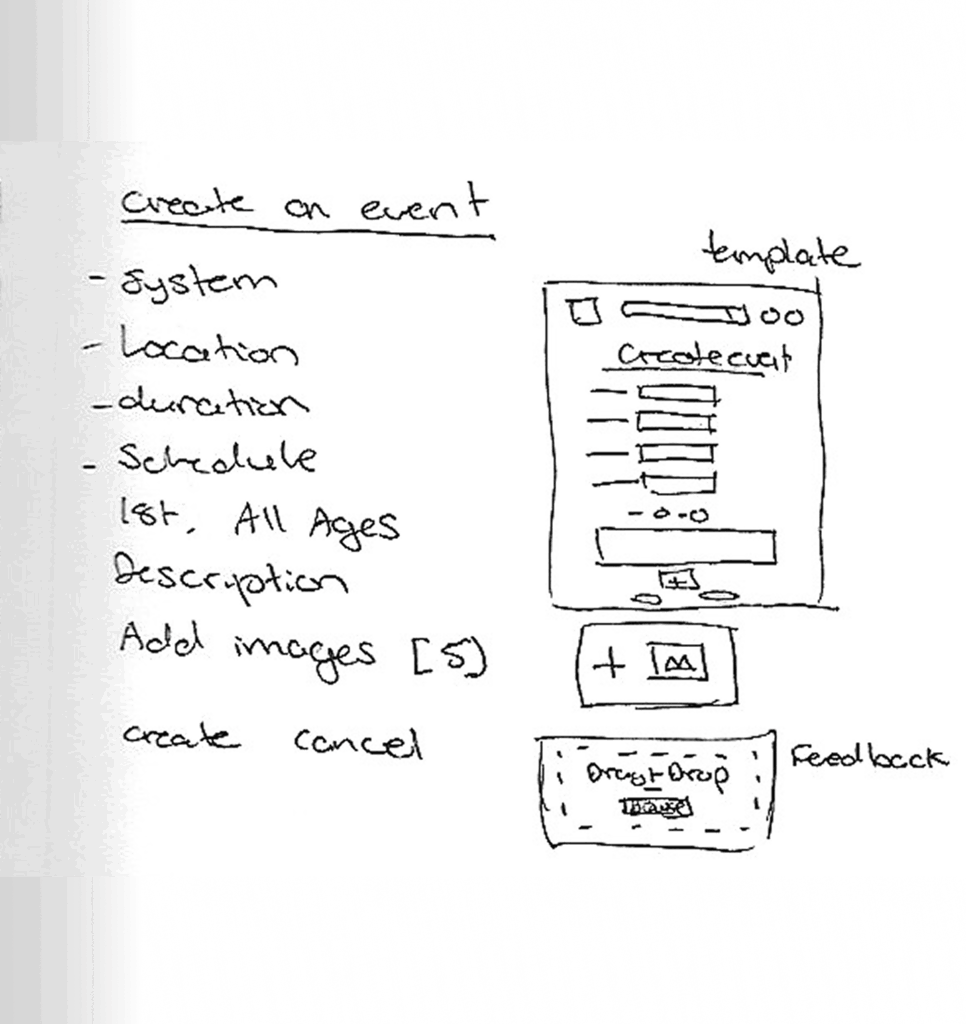 create an event
- System
- Location
- duration
- Schedule
18+, All Ages
Description
Add images [5]
create cancel
template
Create event
Drag + Drop
browse
Feedback